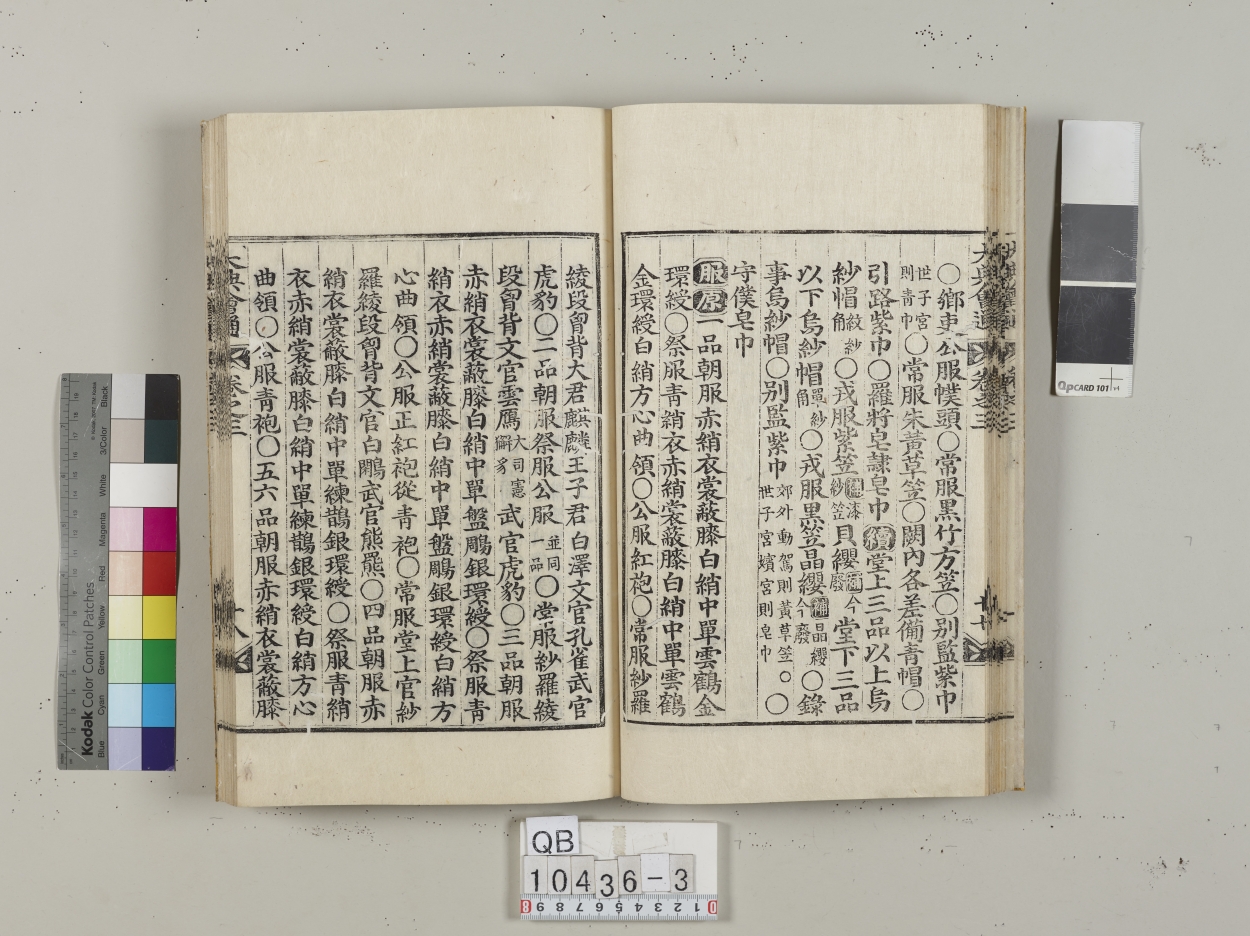 ○鄕吏公服幞頭○常服黑竹方笠○別監紫巾
世子宮
則靑巾○常服朱黃草笠○闕內各差備靑帽○
引路紫巾○羅將皂隷皂巾續堂上三品以上烏
紗帽紋紗
角○戎服紫笠漆
紗笠貝纓今
廢堂下三品
以下烏紗帽單紗
角○戎服黑笠晶纓補晶纓
今廢○錄
事烏紗帽○別監紫巾郊外動駕則黃草笠。○
世子宮嬪宮則皂巾
守僕皂巾
服原一品朝服赤綃衣裳蔽膝白綃中單雲鶴金
環綬○祭服靑綃衣赤綃裳蔽膝白綃中單雲鶴
金環綬白綃方心曲領○公服紅袍○常服紗羅
綾段胷背大君麒麟王子君白澤文官孔雀武官
虎豹○二品朝服祭服公服並同
一品○常服紗羅綾
段胷背文官雲鴈大司憲
獬豸武官虎豹○三品朝服
赤綃衣裳蔽膝白綃中單盤鵰銀環綬○祭服靑
綃衣赤綃裳蔽膝白綃中單盤鵰銀環綬白綃方
心曲領○公服正紅袍從靑袍○常服堂上官紗
羅綾段胷背文官白鷳武官熊羆○四品朝服赤
綃衣裳蔽膝白綃中單練鵲銀環綬○祭服靑綃
衣赤綃裳蔽膝白綃中單練鵲銀環綬白綃方心
曲領○公服靑袍○五六品朝服赤綃衣裳蔽膝
大典會通 卷之三 十八
Kodak Color Control Patches
Blue Cyan Green Yellow Red Magenta White 3/Color Black
QPCARD 101
QB
10436-3